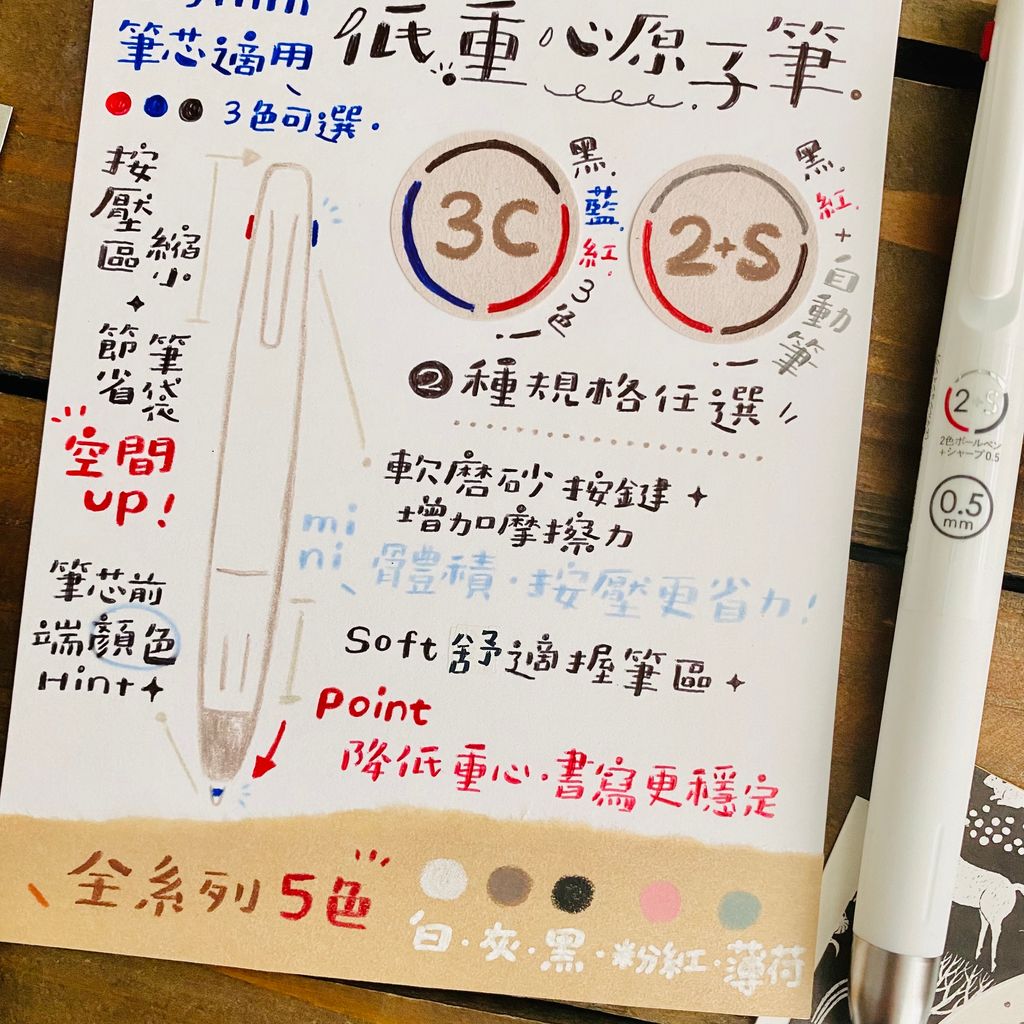 低重心原子筆.
筆芯適用
3色可選.
按壓區
縮小
節省
筆袋
空間
UP!
3C
黑.
藍.
紅.
3色
2+S
黑.
紅.
+
自動筆
2種規格任選
軟磨砂按鍵
增加摩擦力
mini體積·按壓更省力!
筆芯前
端顏色
Hint
Soft舒適握筆區
Point
降低重心·書寫更穩定
全系列5色
白·灰·黑·粉紅·薄荷
2+S
2色ボールペン
+シャープ0.5
0.5
mm